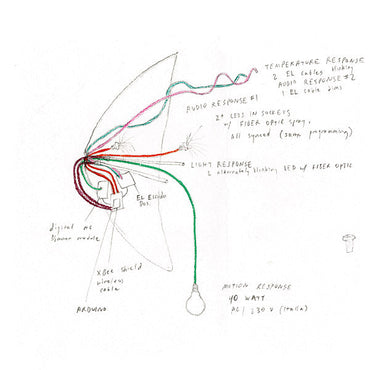 TEMPERATURE RESPONSE
2 EL cables blinking
AUDIO RESPONSE #2
1 EL cable dims
AUDIO RESPONSE #1
LESS IN SOCKETS
w/ FIBER OPTIC Spray,
all synced (same programming)
LIGHT RESPONSE
2 alternately blinking LED w/ FIBER OPTIC
EL Escudo
Dos.
digital AC
Power module
XBee shield
wireless
cable
ARDUINO
MOTION RESPONSE
40 WATT
AC / 230 V (Italia)